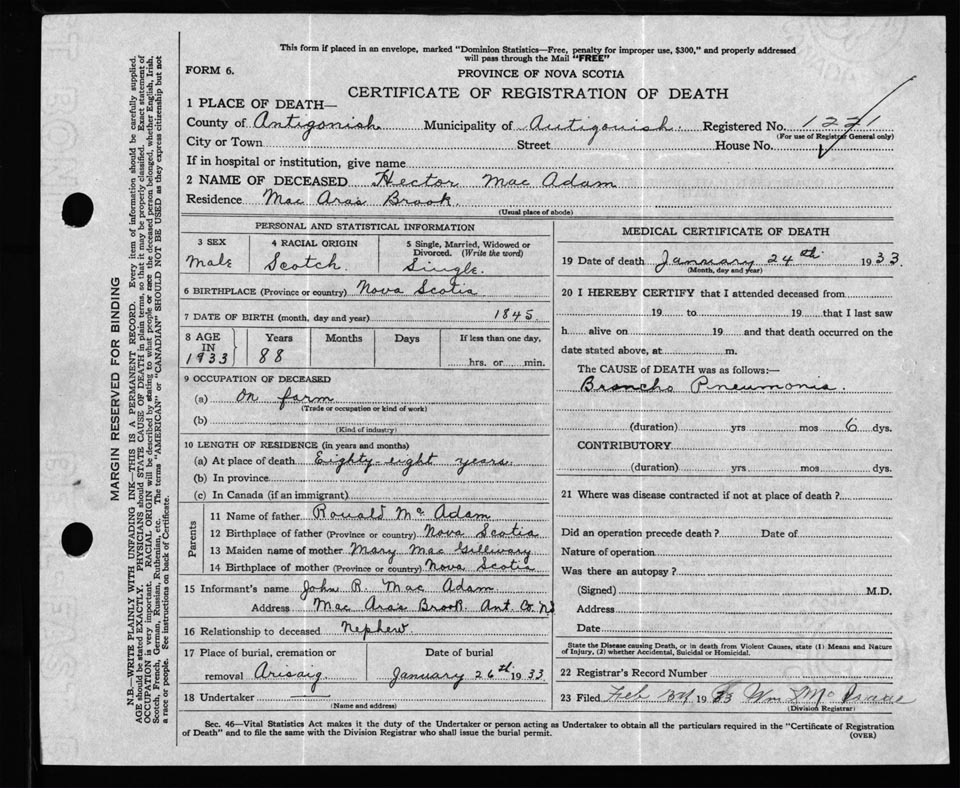 This form if placed in an envelope, marked "Dominion Statistics—Free, penalty for improper use, $300," and properly addressed
will pass through the Mail "FREE"
FORM 6.
PROVINCE OF NOVA SCOTIA
CERTIFICATE OF REGISTRATION OF DEATH
1 PLACE OF DEATH—
County of Antigonish Municipality of Antigonish. Registered No. 1271
(For use of Registrar General only)
City or Town Street House No.
If in hospital or institution, give name
2 NAME OF DECEASED Hector Mac Adam
Residence Mac Aras Brook.
(Usual place of abode)
PERSONAL AND STATISTICAL INFORMATION
3 SEX
Male
4 RACIAL ORIGIN
Scotch.
5 Single, Married, Widowed or
Divorced. (Write the word)
Single.
6 BIRTHPLACE (Province or country) Nova Scotia
7 DATE OF BIRTH (month, day and year) 1845.
8 AGE Years Months Days If less than one day,
IN
1933 88 hrs. or min.
9 OCCUPATION OF DECEASED
(a) On farm
(Trade or occupation or kind of work)
(b)
(Kind of industry)
10 LENGTH OF RESIDENCE (in years and months)
(a) At place of death Eighty eight years.
(b) In province
(c) In Canada (if an immigrant)
Parents
11 Name of father Ronald Mc Adam
12 Birthplace of father (Province or country) Nova Scotia
13 Maiden name of mother Mary Mac Gillivary
14 Birthplace of mother (Province or country) Nova Scotia
15 Informant's name John R. Mac Adam
Address Mac Aras Brook. Ant. Co. NS
16 Relationship to deceased Nephew.
17 Place of burial, cremation or Date of burial
removal Arisaig January 26th 1933.
18 Undertaker
(Name and address)
MEDICAL CERTIFICATE OF DEATH
19 Date of death January 24th 1933.
(Month, day and year)
20 I HEREBY CERTIFY that I attended deceased from
19 to 19 that I last saw
h alive on 19 and that death occurred on the
date stated above, at m.
The CAUSE of DEATH was as follows:—
Broncho Pneumonia.
(duration) yrs mos 6 dys.
CONTRIBUTORY
(duration) yrs mos dys.
21 Where was disease contracted if not at place of death?
Did an operation precede death? Date of
Nature of operation
Was there an autopsy?
(Signed) M.D.
Address
Date
State the Disease causing Death, or in death from Violent Causes, state (1) Means and Nature
of Injury, (2) whether Accidental, Suicidal or Homicidal.
22 Registrar's Record Number
23 Filed Feb 1933 Wm
(Division Registrar)
Sec. 46—Vital Statistics Act makes it the duty of the Undertaker or person acting as Undertaker to obtain all the particulars required in the "Certificate of Registration
of Death" and to file the same with the Division Registrar who shall issue the burial permit.
(OVER)
MARGIN RESERVED FOR BINDING
N.B.—WRITE PLAINLY WITH UNFADING INK—THIS IS A PERMANENT RECORD. Every item of information should be carefully supplied.
AGE should be stated EXACTLY. PHYSICIANS should STATE CAUSE OF DEATH in plain terms, so that it may be properly classified. Exact statement of
OCCUPATION is very important. RACIAL ORIGIN will be described by stating to what people or race the deceased person belonged, whether English, Irish,
Scotch, French, German, Russian, Ruthenian, etc. The terms "AMERICAN" or "CANADIAN" SHOULD NOT BE USED as they express citizenship but not
a race or people. See instructions on back of Certificate.